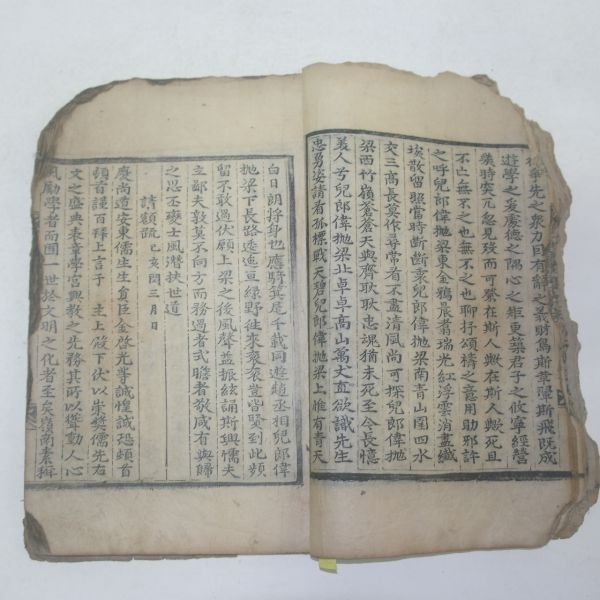 遊學之爰慶德之隔心之矩更築君子之攸寧經營
矣時突兀忽見歿而可祭在斯人歟在斯人歟死且
不亡無不之也無不之也聊抒頌禱之意用助邪許
之呼兒郎偉抛梁東金鴉展翥瑞光紅浮雲消盡纖
埃散留照當時斷斷衷兒郎偉抛梁南青山圍四水
交三高長莫作尋常看不盡清風尚可探兒郎偉抛
梁西竹嶺蒼蒼天與齊耿耿忠魂猶未死至今長憶
美人兮兒郎偉抛梁北卓卓高山萬丈直欲識先生
忠勇姿請看孤標賤天碧兒郎偉抛梁上脩有青天
白日朗將身也應騎箕尾千載同遊趙丞相兒郎偉
抛梁下長路逶迤亘綠野往來裒裒豈皆賢到此頻
留不敢過伏願上梁之後風聲益振絃誦斯興懦夫
立鄙夫敦莫不向方而務過者式瞻者敬咸有與歸
之思丕變士風潛扶世道
請額疏 己亥閏三月日
慶尚道安東儒生生負臣金啓光等誠惶誠恐頓首
頓首謹百拜上言于 主上殿下伏以崇奬儒先右
文之盛典表章學宮興教之先務其所以聳動人心
風勵學者而囿一世於文明之化者至矣嶺南素稱